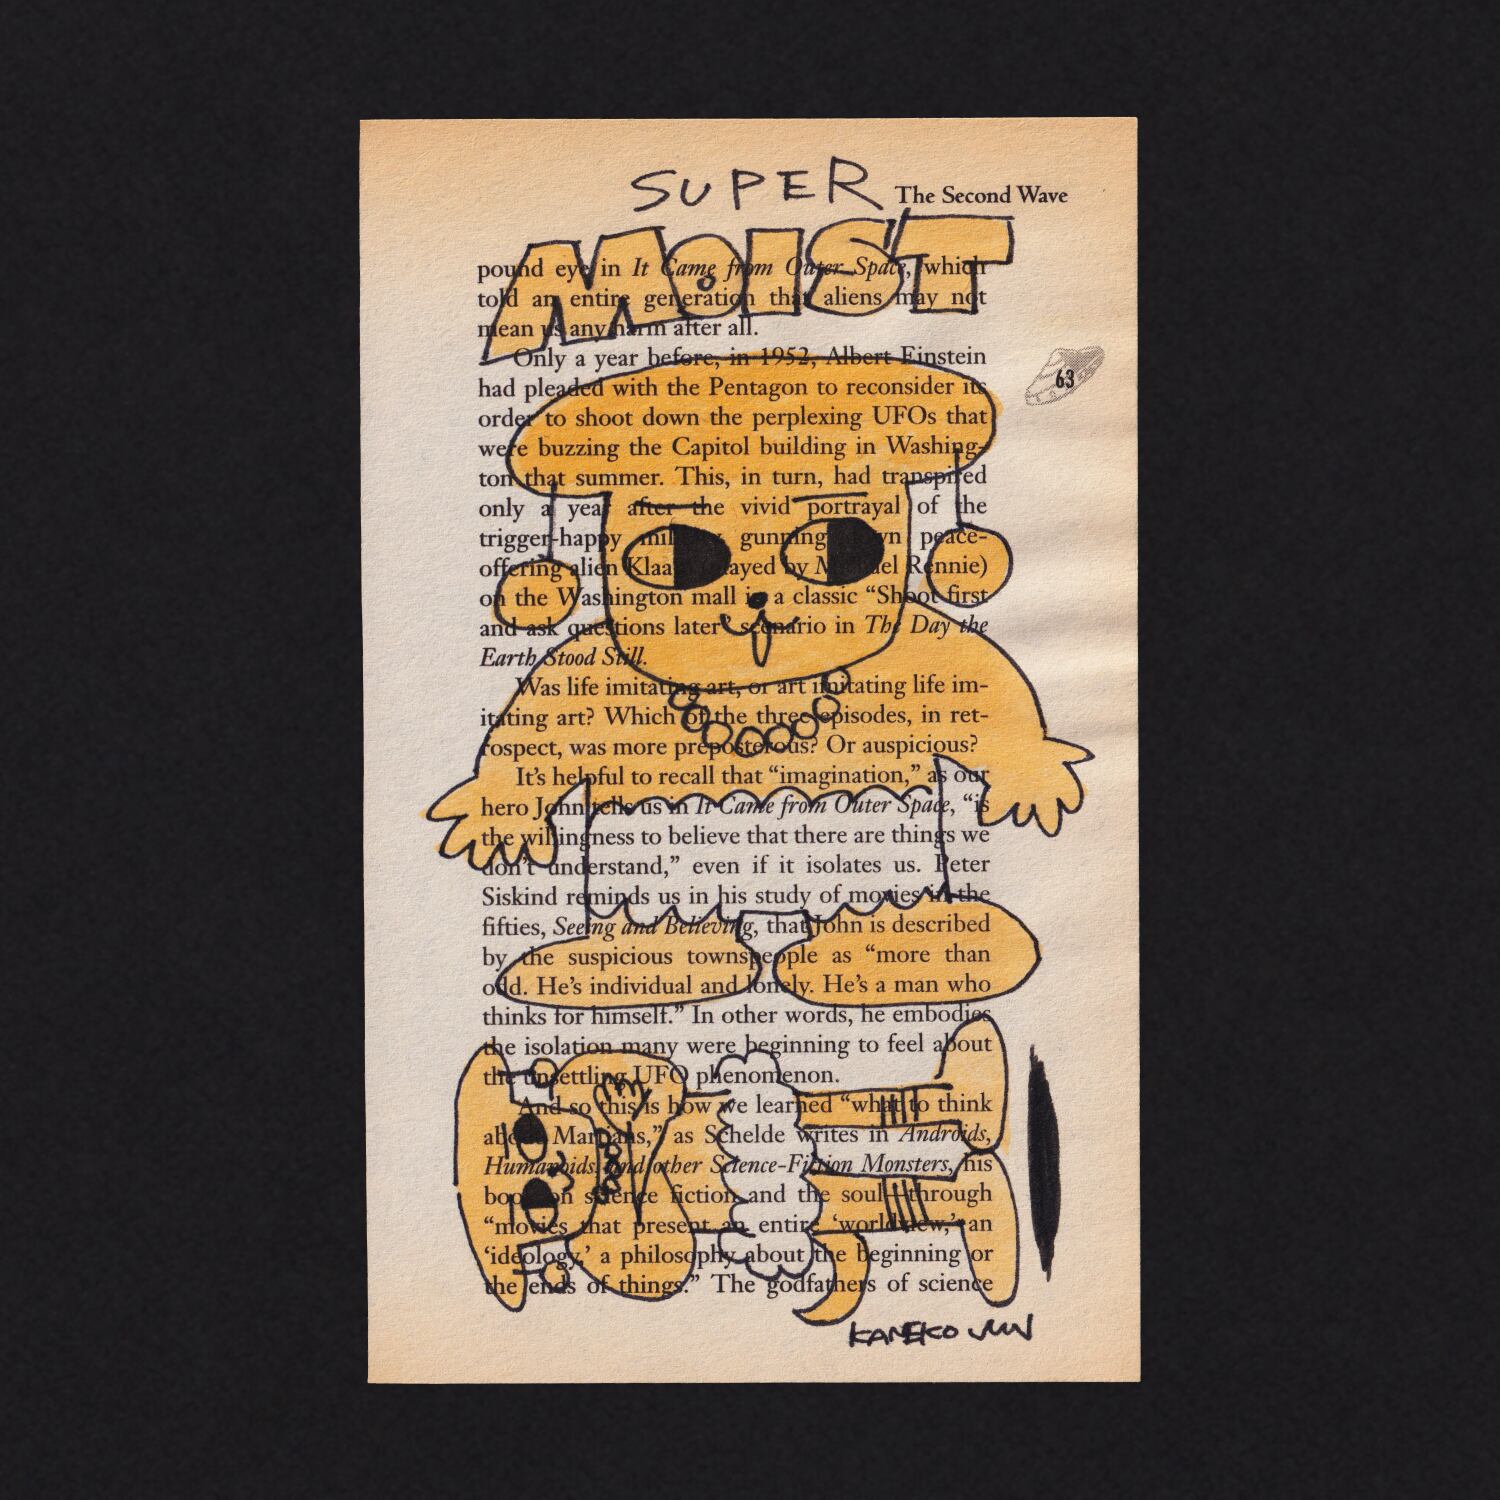 SUPER
The Second Wave
MOIST
pound eye in It Came from Outer Space, which
told an entire generation that aliens may not
mean us any harm after all.
Only a year before, in 1952, Albert Einstein
had pleaded with the Pentagon to reconsider its
63
order to shoot down the perplexing UFOs that
were buzzing the Capitol building in Washing-
ton that summer. This, in turn, had transpired
only a year after the vivid portrayal of the
trigger-happy military gunning down peace-
offering alien Klaatu (played by Michael Rennie)
on the Washington mall in a classic “Shoot first
and ask questions later” scenario in The Day the
Earth Stood Still.
Was life imitating art, or art imitating life im-
itating art? Which of the three episodes, in ret-
rospect, was more preposterous? Or auspicious?
It’s helpful to recall that “imagination,” as our
hero John tells us in It Came from Outer Space, “is
the willingness to believe that there are things we
don’t understand,” even if it isolates us. Peter
Siskind reminds us in his study of movies in the
fifties, Seeing and Believing, that John is described
by the suspicious townspeople as “more than
odd. He’s individual and lonely. He’s a man who
thinks for himself.” In other words, he embodies
the isolation many were beginning to feel about
the unsettling UFO phenomenon.
And so this is how we learned “what to think
about Martians,” as Schelde writes in Androids,
Humanoids, and other Science-Fiction Monsters, his
book on science fiction and the soul—through
“movies that present an entire ‘worldview,’ an
‘ideology,’ a philosophy about the beginning or
the ends of things.” The godfathers of science
KANEKO JUN